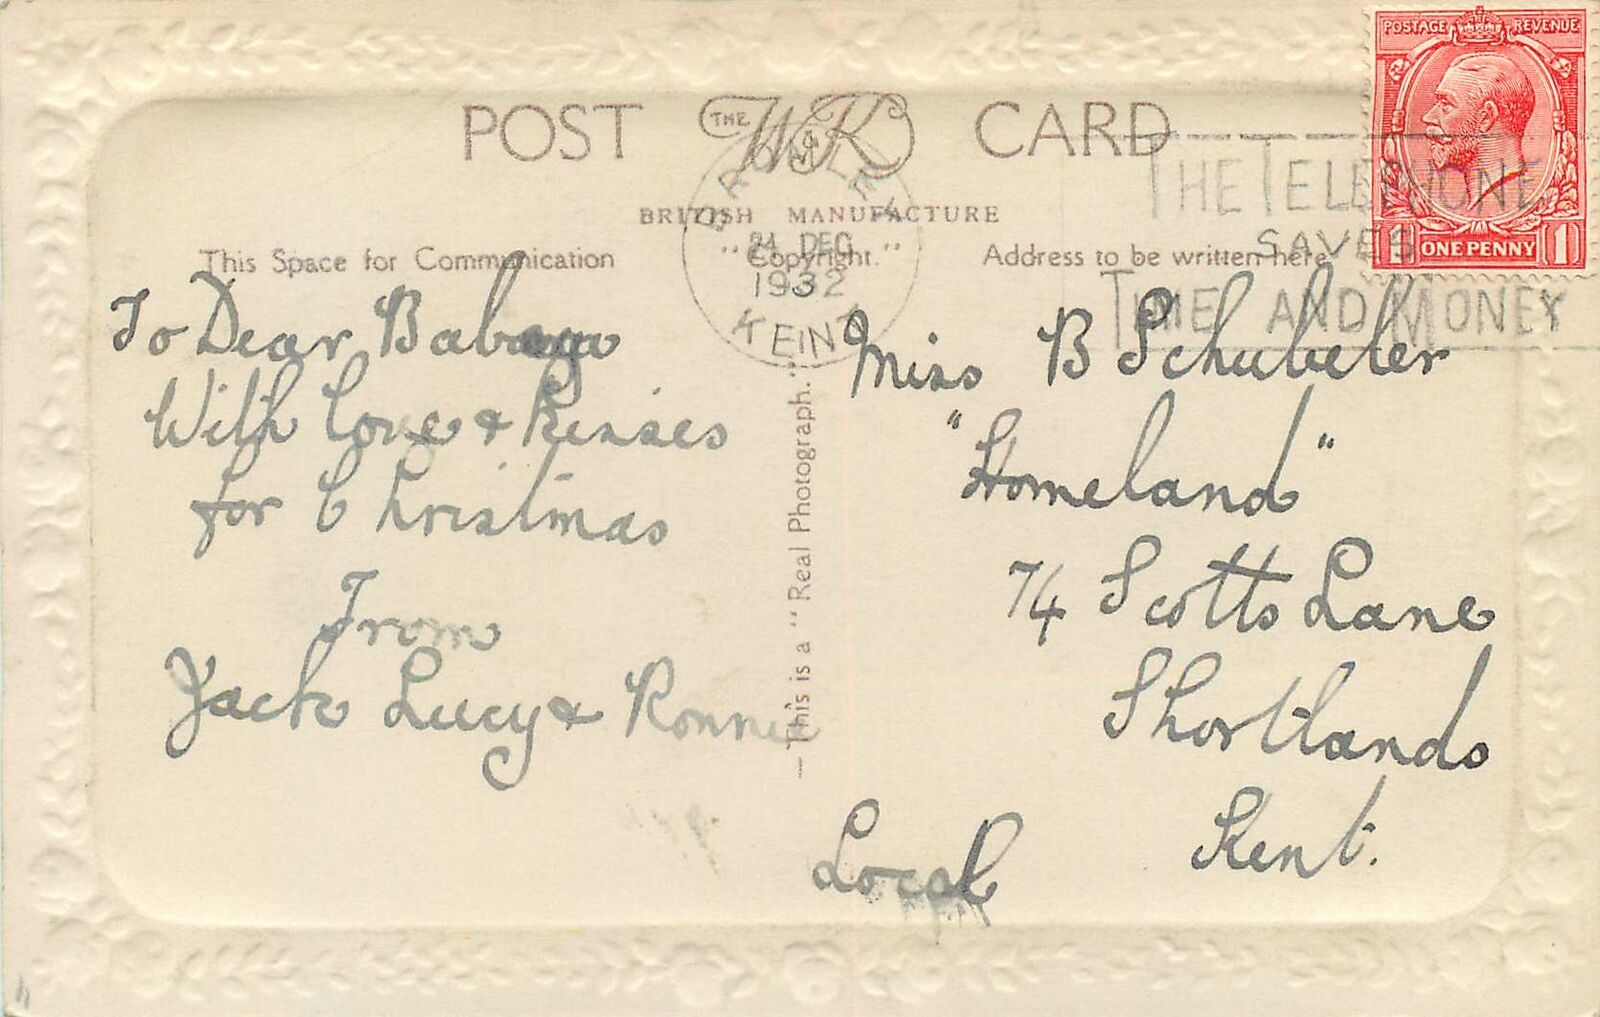 POSTAGE REVENUE
ONE PENNY
1 1
POST THE WK CARD
BRITISH MANUFACTURE
"Copyright."
BROMLEY
24 DEC
1932
KENT
THE TELEPHONE
SAVES
TIME AND MONEY
This Space for Communication
To Dear
With Love & Kisses
for Christmas
From
Jack Lucy & Ronnie
— This is a "Real Photograph."
Address to be written here
Miss B Schubeler
"Homeland"
74 Scotts Lane
Shortlands
Kent.
Local